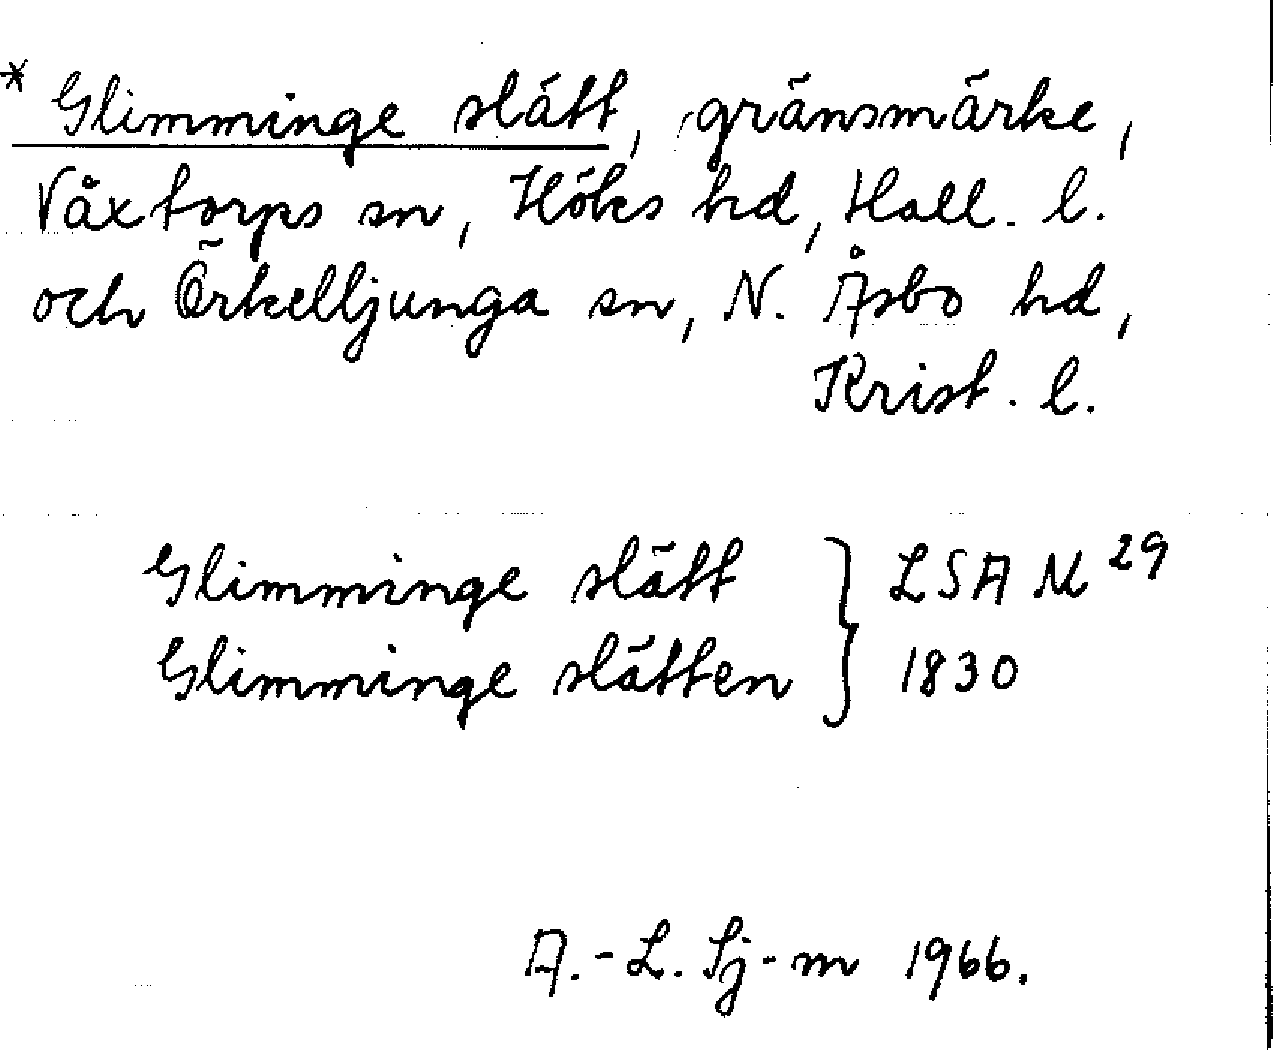 * Glimminge slätt, gränsmärke,
Våxtorps sn, Höks hd, Hall. l.
och Örkelljunga sn, N. Åsbo hd,
Krist. l.
Glimminge slätt } LSA N 29
Glimminge slätten } 1830
A.-L. Sj-m 1966.